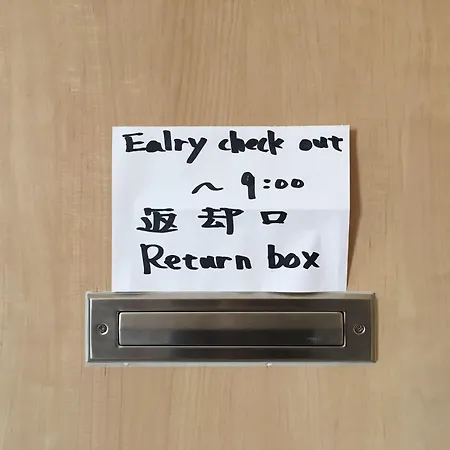 Ealry check out
～ 9:00
返却口
Return box